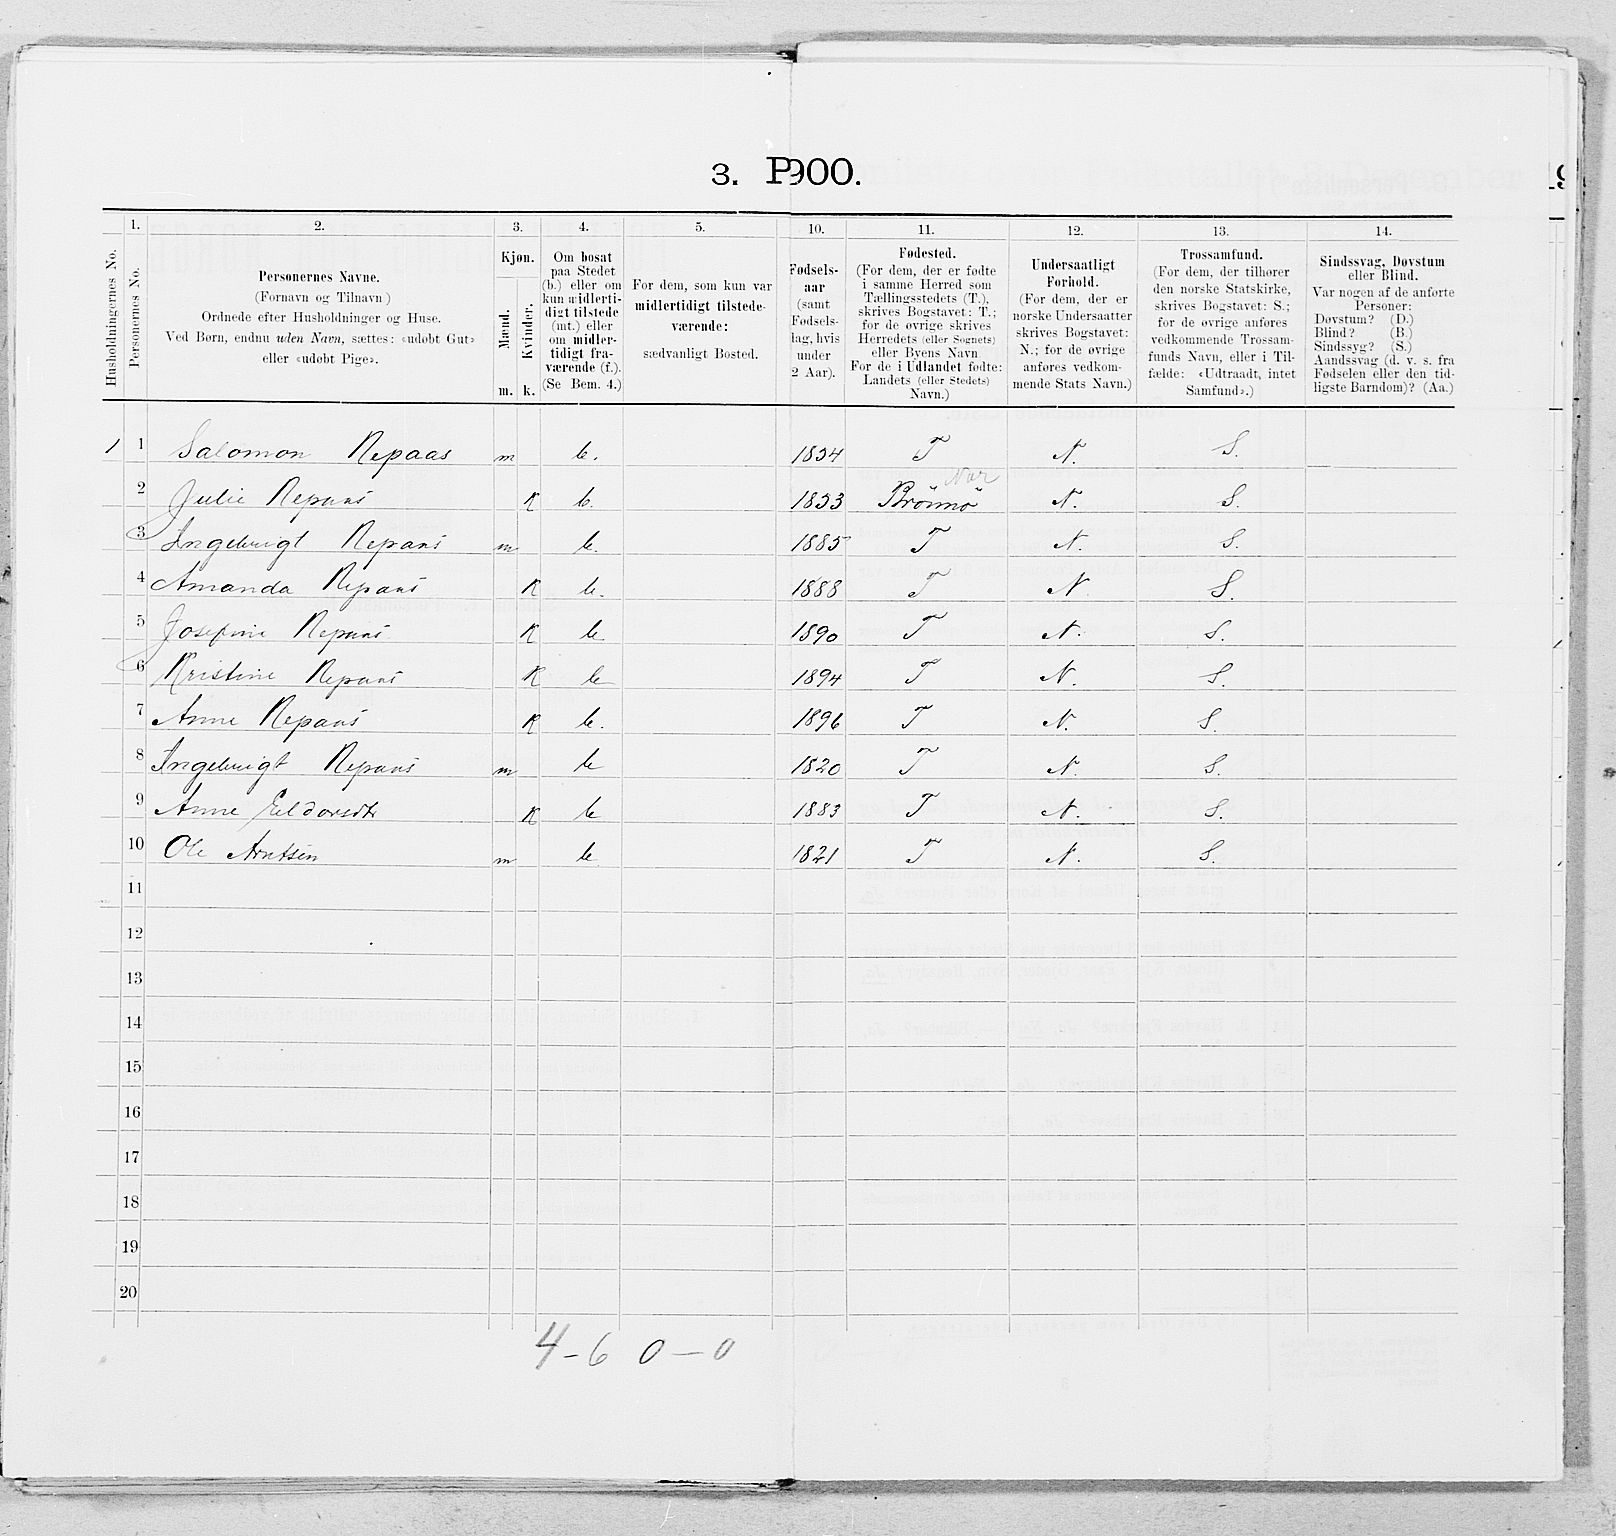 3. P900.
19
1. 2. 3. 4. 5. 10. 11. 12. 13. 14.
Husholdningernes No.
Personernes No.
Personernes Navne.
(Fornavn og Tilnavn)
Ordnede efter Husholdninger og Huse.
Ved Børn, endnu uden Navn, sættes: «udøbt Gut»
eller «udøbt Pige».
Kjøn.
Mænd.
Kvinder.
m. k.
Om bosat
paa Stedet
(b.) eller om
kun midlerti-
digt tilstede
(mt.) eller
om midler-
tidigt fra-
værende (f.).
(Se Bem. 4.)
For dem, som kun var
midlertidigt tilstede-
værende:
sædvanligt Bosted.
Fødsels-
aar
(samt
Fødsels-
dag, hvis
under
2 Aar).
Fødested.
(For dem, der er fødte
i samme Herred som
Tællingsstedets (T.),
skrives Bogstavet: T.;
for de øvrige skrives
Herredets (eller Sognets)
eller Byens Navn
For de i Udlandet fødte:
Landets (eller Stedets)
Navn.)
Undersaatligt
Forhold.
(For dem, der er
norske Undersaatter
skrives Bogstavet:
N.; for de øvrige
anføres vedkom-
mende Stats Navn.)
Trossamfund.
(For dem, der tilhører
den norske Statskirke,
skrives Bogstavet: S.;
for de øvrige anføres
vedkommende Trossam-
funds Navn, eller i Til-
fælde: «Udtraadt, intet
Samfund».)
Sindssvag, Døvstum
eller Blind.
Var nogen af de anførte
Personer:
Døvstum? (D.)
Blind? (B.)
Sindssyg? (S.)
Aandssvag (d. v. s. fra
Fødselen eller den tid-
ligste Barndom)? (Aa.)
1 1 Salomon Repaas m b. 1854 T N. S.
2 Julie Repaas K b. 1853 Brönnö N. S.
3 Ingebrigt Repaas m b. 1885 T N. S.
4 Amanda Repaas K b. 1888 T N S.
5 Josefine Repaas K b 1890 T N. S.
6 Kristine Repaas K b 1894 T N. S.
7 Anne Repaas K b. 1896 T N. S.
8 Ingebrigt Repaas m b 1820 T N. S.
9 Anne Eldorsdtr K b 1883 T N. S.
10 Ole Arntsen m b 1821 T N. S.
11
12
13
14
15
16
17
18
19
20
4-6 0-0